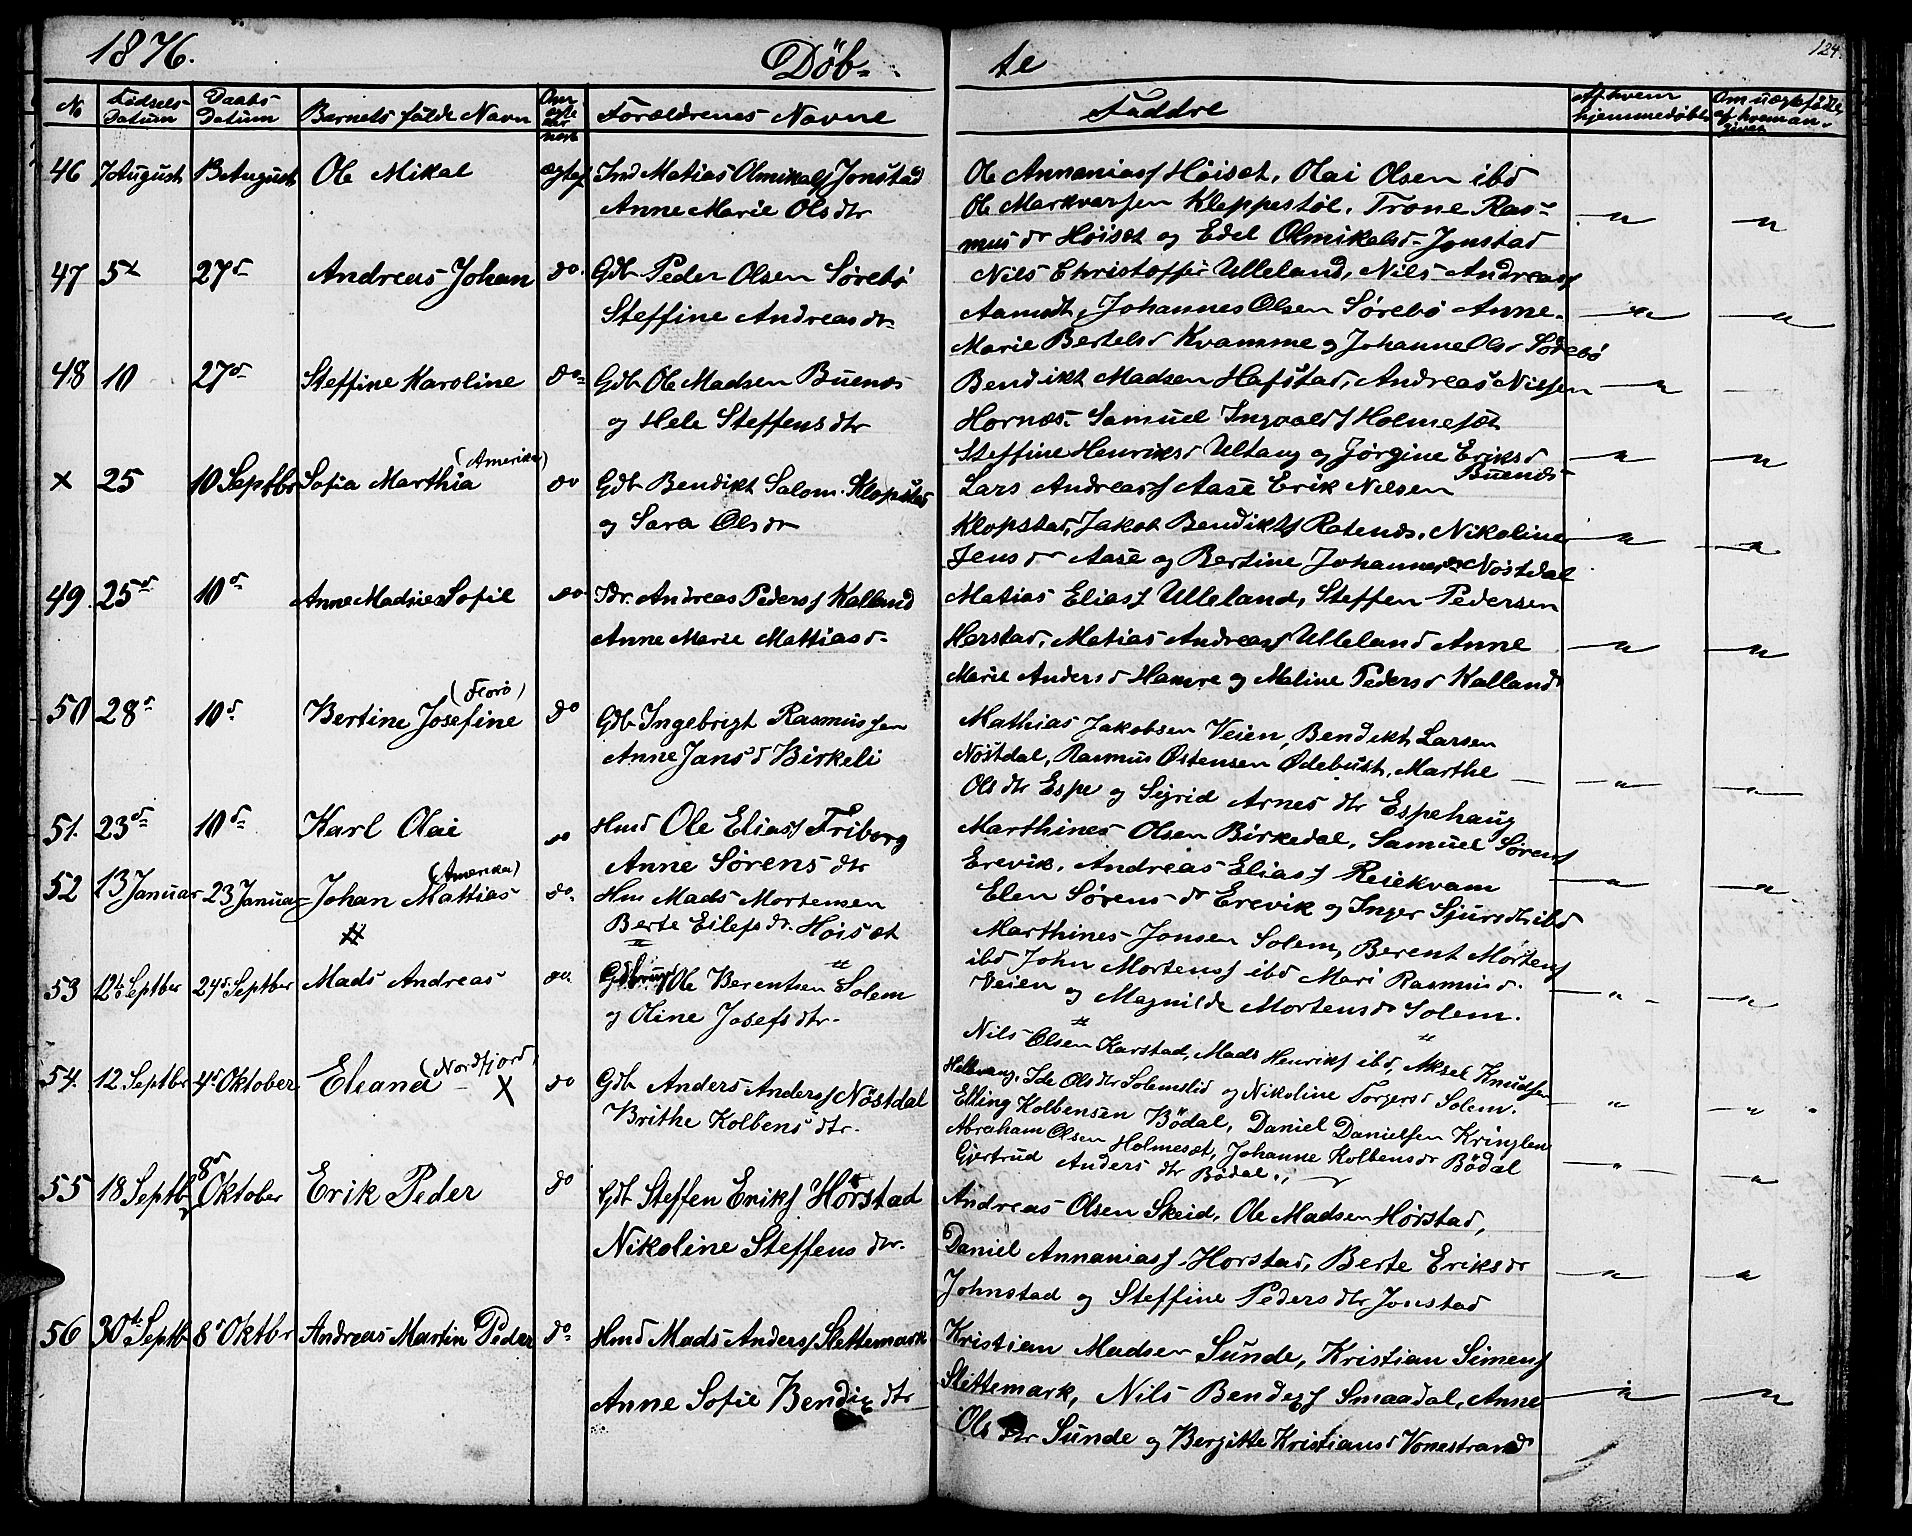 1876. Döb- te 124.
No Fødsels- Datum Daabs Datum Barnets fulde Navn Om ægte eller uægte Forældrenes Navne Faddre Af hvem hjemmedøbt Om uægte fødte, af hvem an- given
46 7 August 13 August Ole Mikal ægtef Ind Matias Olmikals Jonstad
Anne Marie Olsdtr
Ole Annanias Høiset, Olai Olsen ibd
Ole Markvarsen Kleppestøl, Trone Ras-
musdr Høiset og Edel Olmikalsd. Jonstad
47 5t 27d Andreas Johan do Gdb Peder Olsen Sørebö
Steffine Andreasdr.
Nils Christoffer Ulleland, Nils Andreas
Aamodt, Johannes Olsen Sørebö Anne
Marie Bertelsd Kvamme og Johanne Olsd Sörebö
48 10 27d Steffine Karoline do Gdb Ole Madsen Buenæs
og Hele Steffensdtr
Bendikt Madsen Hafstad, Andreas Nilsen
Hornæs. Samuel Ingvalds Holmeset
Steffine Henriksd Ultang og Jörgine Eriksd
Buenæs
x 25 10 Septbr Sofia Marthia (Amerika) do Gdb Bendikt Salom. Klopstad
og Sara Olsdr
Lars Andreas Aase Erik Nilsen
Klopstad, Jakob Bendikts Rotenæs, Nikoline
Jensdr Aase og Bertine Johannesdr Nøstdal
49. 25d 10d Anne Madsine Sofie do Idr. Andreas Peders Kalland
Anne Marie Mattiasd.
Matias Elias Ulleland, Steffen Pedersen
Horstad, Matias Andreas Ulleland Anne
Marie Andersd Hamre og Maline Pedersd Kalland
50 28d 10d Bertine Josefine (Florö) do Gdb Ingebrigt Rasmussen
Anne Jansd Birkeli
Mathias Jakobsen Veien, Bendikt Larsen
Nöstdal, Rasmus Østensen Ødebust, Marthe
Olsdtr Espe og Sigrid Arnesdtr Espehaug
51. 23d 10d Karl Olai do Hmd Ole Elias Friborg
Anne Sörensdtr
Marthines Olsen Birkedal, Samuel Sörens
Erevik, Andreas Elias Reiekvam
Elen Sörensdr Erevik og Inger Sjursdtr ibd
52 13 Januar 23 Januar Johan Mattias (Amerika) do. Hm Mads Mortensen
Berte Eilefsdr. Høiset
Marthines Jonsen Solem, Berent Mortens
ibd John Mortens ibd Mari Rasmusd.
Veien og Magnilde Mortensdr Solem.
53 12te Septber 24d Septber Mads Andreas do. Gdbrug Ole Berentsen Solem
og Oline Josefsdtr.
Nils Olsen Karstad, Mads Henriks ibd, Aksel Knudsen
Hellevang, Ide Olsdtr Solemslid og Nikoline Torgersd Solem.
54. 12 Septbr 4d Oktober Eleana (Nordfjord) X do Gdb Anders Anders Nøstdal
Brithe Kolbensdtr.
Elling Kolbensen Bödal, Daniel Danielsen Kringlen
Abraham Olsen Holmeset, Johanne Kolbensdr Bödal
Gjertrud Andersdtr Bødal.
55 18 Septbr 8d Oktober Erik Peder do Gdb Steffen Eriks Hørstad
Nikoline Steffensdtr.
Andreas Olsen Skeid, Ole Madsen Hørstad,
Daniel Annanias Horstad, Berte Eriksdr
Johnstad og Steffine Pedersdtr Jonstad
56 30te Septb 8d Oktbr Andreas Martin Peder do. Hmd Mads Anders Slettemark
Anne Sofie Bendixdtr
Kristian Madsen Sunde, Kristian Simens
Slettemark, Nils Bendix Smaadal, Anne
Olsdtr Sunde og Bergitte Kristiansd Vonestrand